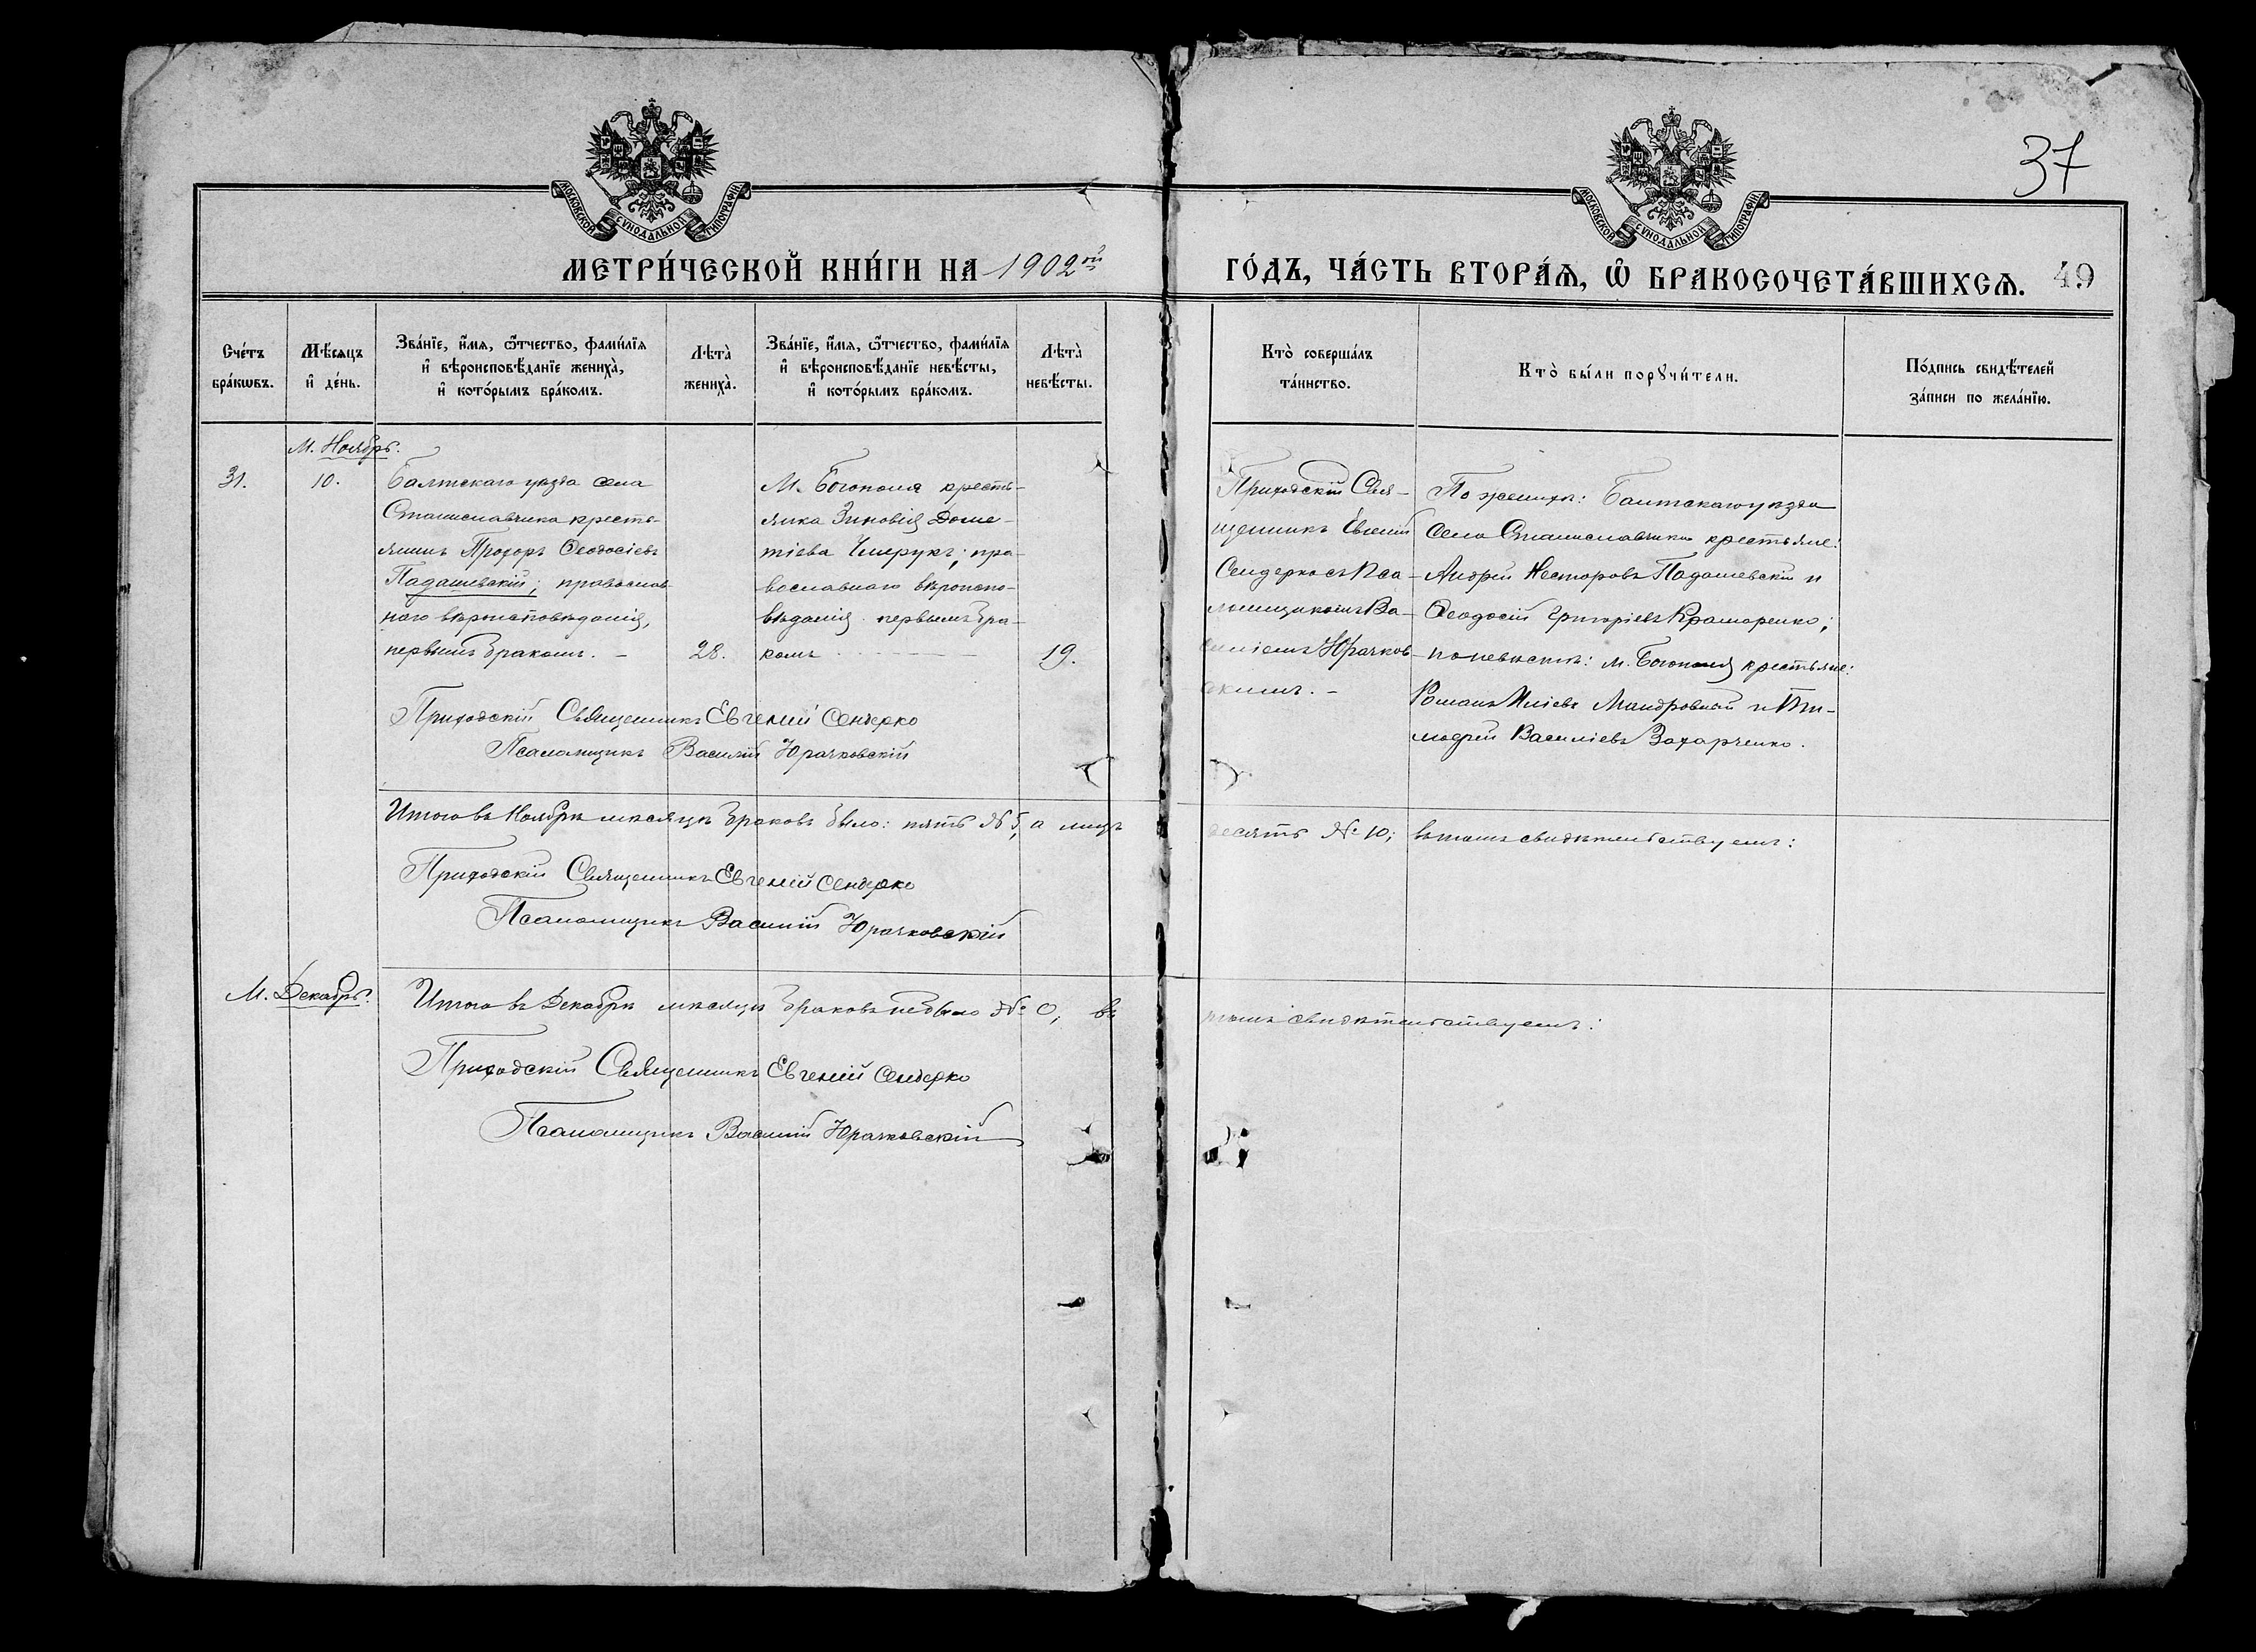 37
МОСКОВСКОЙ СУНОДАЛЬНОЙ ТИПОГРАФІИ
МОСКОВСКОЙ СУНОДАЛЬНОЙ ТИПОГРАФІИ
МЕТРИ́ЧЕСКОЙ КНИ́ГИ НА 1902ой
ГО́ДЪ, ЧА́СТЬ ВТОРА́Ѧ, Ѿ БРАКОСОЧЕТА́ВШИХСѦ. 49
Сче́тъ бра́кѡвъ.
Мѣ́сяцъ и҆ де́нь.
Зва́нїе, и҆́мя, ѻ҆́тчество, фами́лїя
и҆ вѣроисповѣ́данїе жениха̀,
и҆ кото́рымъ бра́комъ.
Лѣта̀ жениха̀.
Зва́нїе, и҆́мя, ѻ҆́тчество, фами́лїя
и҆ вѣроисповѣ́данїе невѣ́сты,
и҆ кото́рымъ бра́комъ.
Лѣта̀ невѣ́сты.
Кто̀ соверша́лъ
та́инство.
Кто̀ бы́ли порꙋчи́тели.
По́дпись свидѣ́телей
за́писи по жела́нїю.
М. Ноябрь.
31.
10.
Балтскаго уѣзда села
Станиславчика кресть-
янинъ Прохоръ Ѳеодосіевъ
Падашевскій; православ-
наго вѣроисповѣданія,
первымъ бракомъ. –
28.
М. Богополя кресть-
янка Зиновія Доме-
тіева Чмерукъ; пра-
вославнаго вѣроиспо-
вѣданія первымъ бра-
комъ
19.
Приходскій Свя-
щенникъ Евгеній
Сендерко съ Пса-
ломщикомъ Ва-
силіемъ Юрачков-
скимъ. –
По женихѣ: Балтскаго уѣзда
села Станиславчика крестьяне:
Андрей Несторовъ Падашевскій и
Ѳеодосій Григоріевъ Крамаренко;
по невѣстѣ: м. Богополя крестьяне:
Романъ Иліевъ Мандровный и Ти-
мофей Василіевъ Захарченко.
Приходскій Священникъ Евгеній Сендерко
Псаломщикъ Василій Юрачковскій
Итого въ Ноябрѣ мѣсяцѣ браковъ было: пять № 5, а лицъ
десять № 10; въ томъ свидѣтельствуемъ:
Приходскій Священникъ Евгеній Сендерко
Псаломщикъ Василій Юрачковскій
М. Декабрь.
Итого въ Декабрѣ мѣсяцѣ браковъ небыло № 0; въ
томъ свидѣтельствуемъ:
Приходскій Священникъ Евгеній Сендерко
Псаломщикъ Василій Юрачковскій